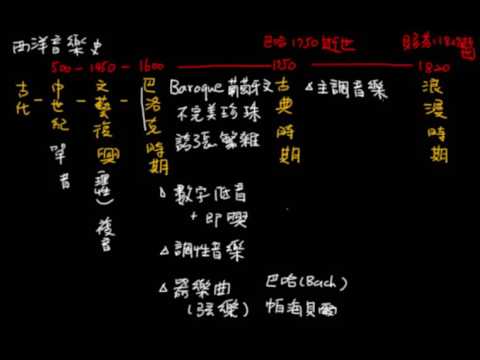 西洋音樂史
巴哈1750逝世
500 - 1450 - 1600
1750
1820
古代 - 中世紀 - 文藝復興 - 巴洛克時期
Baroque 葡萄牙文
不完美珍珠
誇張繁雜
古典時期
△主調音樂
浪漫時期
單音
(理性)複音
△數字低音
+即興
△調性音樂
△器樂曲
(弦樂)
巴哈(Bach)
帕海貝爾